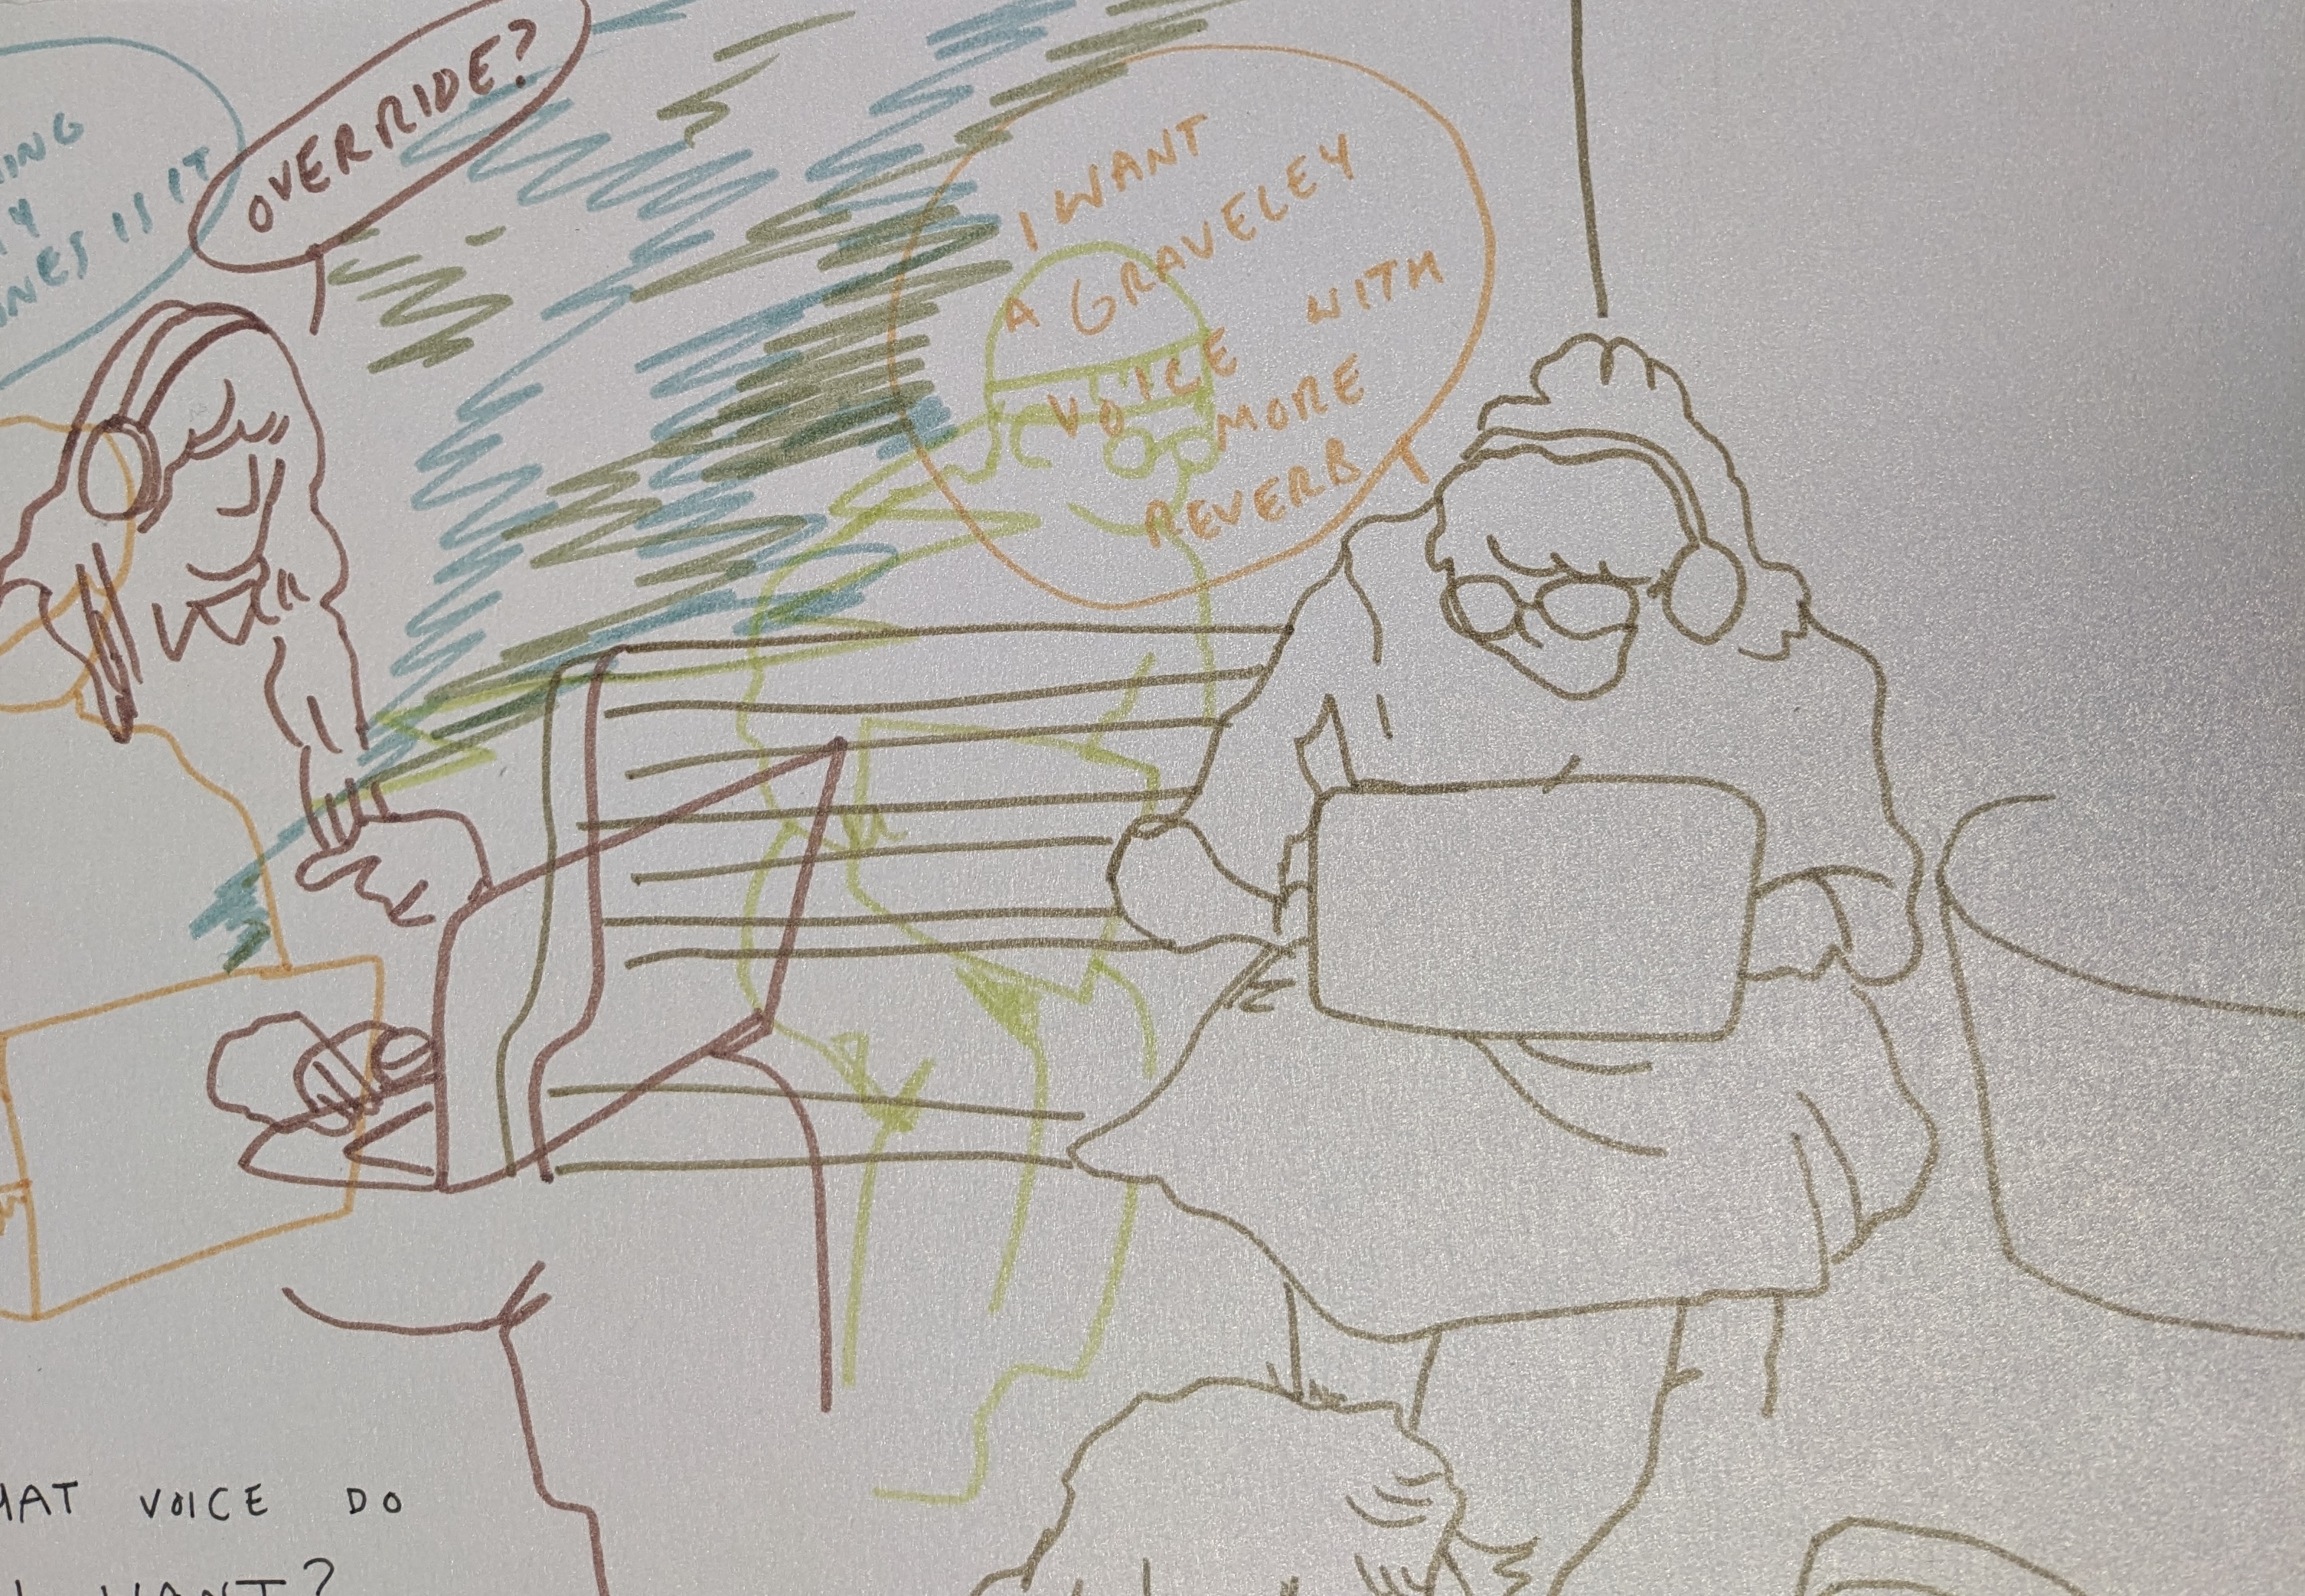 ING
Y
NES IS IT
OVERRIDE?
I WANT
A GRAVELEY
VOICE WITH
MORE
REVERB
HAT VOICE DO
WANT?